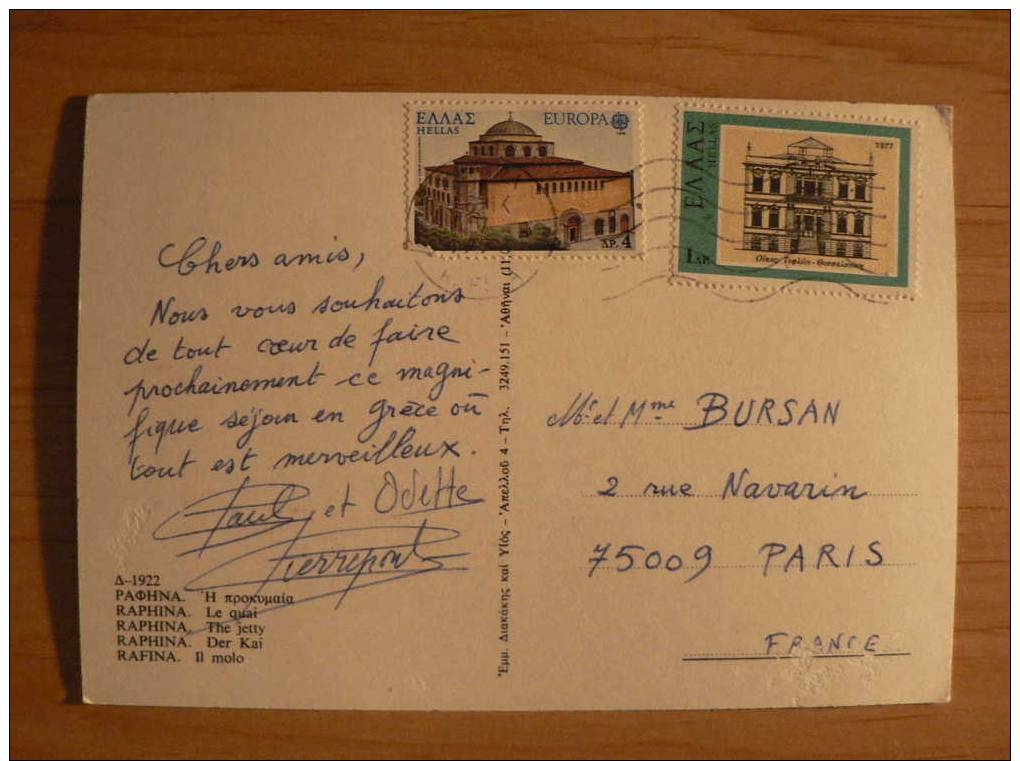 ΕΛΛΑΣ EUROPA
HELLAS
ΔΡ. 4
ΕΛΛΑΣ
HELLAS
1977
1 ΔΡ.
Chers amis,
Nous vous souhaitons
de tout cœur de faire
prochainement ce magni-
fique séjour en Grèce où
tout est merveilleux.
Paul et Odette
Pierrepont
Δ-1922
ΡΑΦΗΝΑ. Ἡ προκυμαία
RAPHINA. Le quai
RAPHINA. The jetty
RAPHINA. Der Kai
RAFINA. Il molo
Ἐμμ. Διακάκης καί Υἱός – Ἀπελλοῦ 4 – Τηλ. 3249.151 – Ἀθῆναι
Mr et Mme BURSAN
2 rue Navarin
75009 PARIS
FRANCE